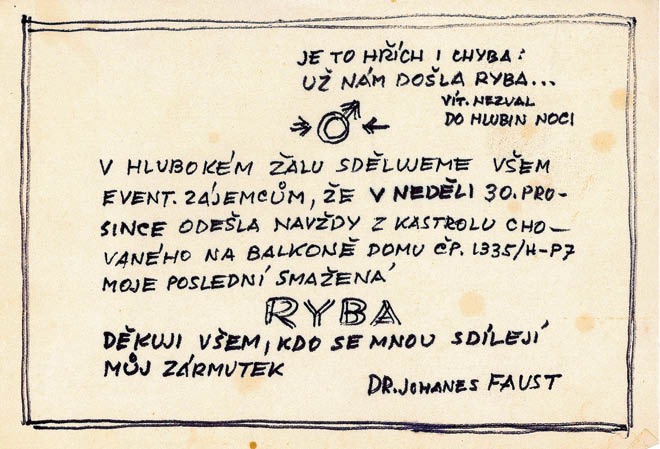 JE TO HŘÍCH I CHYBA:
UŽ NÁM DOŠLA RYBA...
VÍT. NEZVAL
DO HLUBIN NOCI
V HLUBOKÉM ŽALU SDĚLUJEME VŠEM
EVENT. ZÁJEMCŮM, ŽE V NEDĚLI 30. PRO-
SINCE ODEŠLA NAVŽDY Z KASTROLU CHO-
VANÉHO NA BALKONĚ DOMU ČP. 1335/H-P7
MOJE POSLEDNÍ SMAŽENÁ
RYBA
DĚKUJI VŠEM, KDO SE MNOU SDÍLEJÍ
MŮJ ZÁRMUTEK
DR. JOHANES FAUST